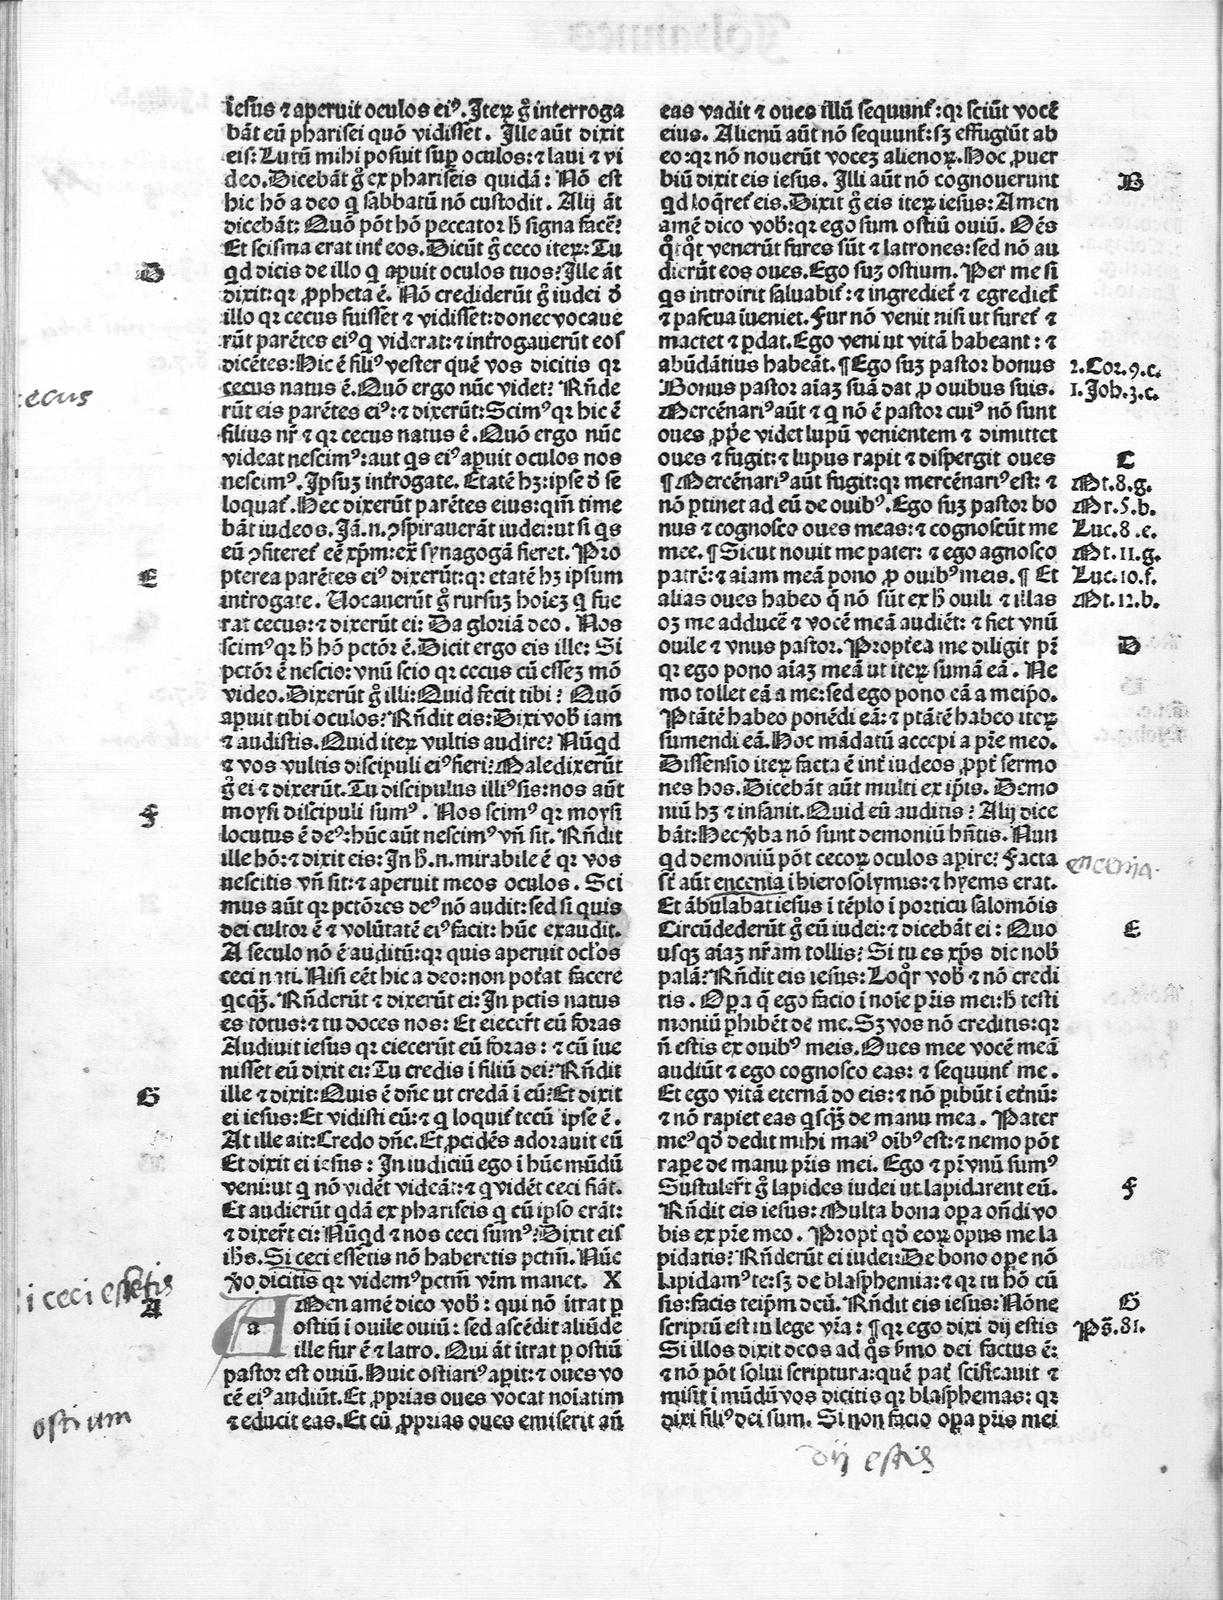 iesus ⁊ aperuit oculos eiꝰ. Iteꝝ g̊ interroga
bāt eū pharisei quō vidisset. Ille aūt dixit
eis: Lutū mihi posuit suꝑ oculos: ⁊ laui ⁊ vi
deo. Dicebāt g̊ ex phariseis quidā: Nō est
hic hō a deo q̄ sabbatū nō custodit. Alij āt
dicebāt: Quō pōt hō peccator h̄ signa facē?
Et scisma erat int̄ eos. Dicūt g̊ ceco iteꝝ: Tu
qd dicis de illo q aꝑuit oculos tuos? Ille āt
dixit: qꝛ ꝓpheta ē. Nō crediderūt g̊ iudei d̄
illo qꝛ cecus fuisset ⁊ vidisset: donec vocaue
rūt parētes eiꝰ q viderat: ⁊ int̄rogauerūt eos
dicētes: Hic ē filiꝰ vester quē vos dicitis qꝛ
cecus natus ē. Quō ergo nūc videt? Rn̄de
rūt eis parētes eiꝰ: ⁊ dixerūt: Scimꝰ qꝛ hic ē
filius nr̄ ⁊ qꝛ cecus natus ē. Quō ergo nūc
videat nescimꝰ: aut qs eiꝰ aꝑuit oculos nos
nescimꝰ. Ipsuꝫ int̄rogate. Etatē hꝫ: ipse d̄ se
loquat̄. Hec dixerūt parētes eius: qm̄ time
bāt iudeos. Iā .n. ꝯspirauerāt iudei: ut si qs
eū ꝯfiteret̄ eē xp̄m: ex̄ synagogā fieret. Pro
pterea parētes eiꝰ dixerūt: qꝛ etatē hꝫ ipsum
int̄rogate. Uocauerūt g̊ rursuꝫ hoīeꝫ q fue
rat cecus: ⁊ dixerūt ei: Da gloriā deo. Nos
scimꝰ qꝛ h̄ hō pctōr ē. Dicit ergo eis ille: Si
pctōr ē nescio: vnū scio qꝛ cecus cū esseꝫ mō
video. Dixerūt g̊ illi: Quid fecit tibi? Quō
aꝑuit tibi oculos? Rn̄dit eis: Dixi vob̄ iam
⁊ audistis. Quid iteꝝ vultis audire? Nūqd
⁊ vos vultis discipuli eiꝰ fieri? Maledixerūt
g̊ ei ⁊ dixerūt. Tu discipulus illiꝰ sis: nos aūt
moysi discipuli sumꝰ. Nos scimꝰ qꝛ moysi
locutus ē deꝰ: hūc aūt nescimꝰ vn̄ sit. Rn̄dit
ille hō: ⁊ dixit eis: In h̄ .n. mirabile ē qꝛ vos
nescitis vn̄ sit: ⁊ aperuit meos oculos. Sci
mus aūt qꝛ pctōres deꝰ nō audit: sed si quis
dei cultor ē ⁊ volūtatē eiꝰ facit: hūc exaudit.
A seculo nō ē auditū: qꝛ quis aperuit oclos
ceci nati. Nisi eēt hic a deo: non pot̄at facere
qcqꝫ. Rn̄derūt ⁊ dixerūt ei: In pctis natus
es totus: ⁊ tu doces nos: Et eiecer̄t eū foras
Audiuit iesus qꝛ eiecerūt eū foras: ⁊ cū īue
nisset eū dixit ei: Tu credis ī filiū dei? Rn̄dit
ille ⁊ dixit: Quis ē dn̄e ut credā ī eū? Et dixit
ei iesus: Et vidisti eū: ⁊ q loquit̄ tecū ipse ē.
At ille ait: Credo dn̄e. Et ꝓcidēs adorauit eū
Et dixit ei iesus: In iudiciū ego ī hūc mūdū
veni: ut q nō vidēt videāt: ⁊ q vidēt ceci fiāt.
Et audierūt qdā ex phariseis q cū ipso erāt:
⁊ dixer̄t ei: Nūqd ⁊ nos ceci sumꝰ? Dixit eis
ih̄s. Si ceci essetis nō haberetis pctm̄. Nūc
v̄o dicitis qꝛ videmꝰ pctm̄ vr̄m manet. X
AMen amē dico vob̄: qui nō ītrat ꝑ
ostiū ī ouile ouiū: sed ascēdit aliūde
ille fur ē ⁊ latro. Qui āt ītrat ꝑ ostiū
pastor est ouiū. Huic ostiariꝰ aꝑit: ⁊ oues vo
cē eiꝰ audiūt. Et ꝓprias oues vocat noīatim
⁊ educit eas. Et cū ꝓprias oues emiserit an̄
a
D
E
F
G
A
ecus
i ceci essetis
ostium
eas vadit ⁊ oues illū sequunt̄: qꝛ sciūt vocē
eius. Alienū aūt nō sequunt̄: sꝫ effugiūt ab
eo: qꝛ nō nouerūt voceꝫ alienoꝝ. Hoc ꝓuer
biū dixit eis iesus. Illi aūt nō cognouerunt
qd loq̄ret̄ eis. Dixit g̊ eis iteꝝ iesus: Amen
amē dico vob̄: qꝛ ego sum ostiū ouiū. Oēs
q̊tq̊t venerūt fures sūt ⁊ latrones: sed nō au
dierūt eos oues. Ego suꝫ ostium. Per me si
qs introirit saluabit̄: ⁊ ingrediet̄ ⁊ egrediet̄
⁊ pascua īueniet. Fur nō venit nisi ut furet̄ ⁊
mactet ⁊ ꝑdat. Ego veni ut vitā habeant: ⁊
abūdātius habeāt. ¶ Ego suꝫ pastor bonus
Bonus pastor aīaꝫ suā dat ꝓ ouibus suis.
Mercēnariꝰ aūt ⁊ q nō ē pastor cuiꝰ nō sunt
oues ꝓpe videt lupū venientem ⁊ dimittet
oues ⁊ fugit: ⁊ lupus rapit ⁊ dispergit oues
¶ Mercēnariꝰ aūt fugit: qꝛ mercēnariꝰ est: ⁊
nō ꝑtinet ad eū de ouibꝰ. Ego suꝫ pastor bo
nus ⁊ cognosco oues meas: ⁊ cognoscūt me
mee. ¶ Sicut nouit me pater: ⁊ ego agnosco
patrē: ⁊ aīam meā pono ꝓ ouibꝰ meis. ¶ Et
alias oues habeo q̄ nō sūt ex h̄ ouili ⁊ illas
oꝫ me adducē ⁊ vocē meā audiēt: ⁊ fiet vnū
ouile ⁊ vnus pastor. Propt̄ea me diligit pr̄
qꝛ ego pono aīaꝫ meā ut iteꝝ sumā eā. Ne
mo tollet eā a me: sed ego pono eā a meīpo.
Ptātē habeo ponēdi eā: ⁊ ptātē habeo iteꝝ
sumendi eā. Hoc mādatū accepi a pr̄e meo.
Dissensio iteꝝ facta ē int̄ iudeos ꝓpt̄ sermo
nes hos. Dicebāt aūt multi ex ip̄is. Demo
niū hꝫ ⁊ insanit. Quid eū auditis? Alij dice
bāt: Hec v̄ba nō sunt demoniū hn̄tis. Nun
qd demoniū pōt cecoꝝ oculos aꝑire? Facta
st̄ aūt encenia ī hierosolymis: ⁊ hyems erat.
Et ābulabat iesus ī tēplo ī porticu salomōis
Circūdederūt g̊ eū iudei: ⁊ dicebāt ei: Quo
usqꝫ aīaꝫ nr̄am tollis? Si tu es xp̄s dic nob̄
palā? Rn̄dit eis iesus: Loq̊r vob̄ ⁊ nō credi
tis. Oꝑa q̄ ego facio ī noīe pr̄is mei: h̄ testi
moniū ꝑhibēt de me. Sꝫ vos nō creditis: qꝛ
n̄ estis ex ouibꝰ meis. Oues mee vocē meā
audiūt ⁊ ego cognosco eas: ⁊ sequunt̄ me.
Et ego vitā eternā do eis: ⁊ nō ꝑibūt ī et̄nū:
⁊ nō rapiet eas qsqꝫ de manu mea. Pater
meꝰ qd̄ dedit mihi maiꝰ oībꝰ est: ⁊ nemo pōt
raꝑe de manu pr̄is mei. Ego ⁊ pr̄ vnū sumꝰ
Sustuler̄t g̊ lapides iudei ut lapidarent eū.
Rn̄dit eis iesus: Multa bona oꝑa on̄di vo
bis ex pr̄e meo. Propt̄ qd̄ eoꝝ opus me la
pidatis? Rn̄derūt ei iudei: De bono oꝑe nō
lapidamꝰ te: sꝫ de blasphemia: ⁊ qꝛ tu hō cū
sis: facis teip̄m deū. Rn̄dit eis iesus: Nōne
scriptū est in lege vr̄a: ¶ qꝛ ego dixi dij estis
Si illos dixit deos ad q̊s s̄mo dei factus ē:
⁊ nō pōt solui scriptura: quē pat̄ scīficauit ⁊
misit ī mūdū vos dicitis qꝛ blasphemas: qꝛ
dixi filiꝰ dei sum. Si non facio oꝑa pr̄is mei
B
2. Cor. 9. c.
1. Joh. 3. c.
C
Mt. 8. g.
Mr. 5. b.
Luc. 8. e.
Mt. 11. g.
Luc. 10. f.
Mt. 12. b.
D
encenia.
E
F
G
Ps̄. 81.
dij estis